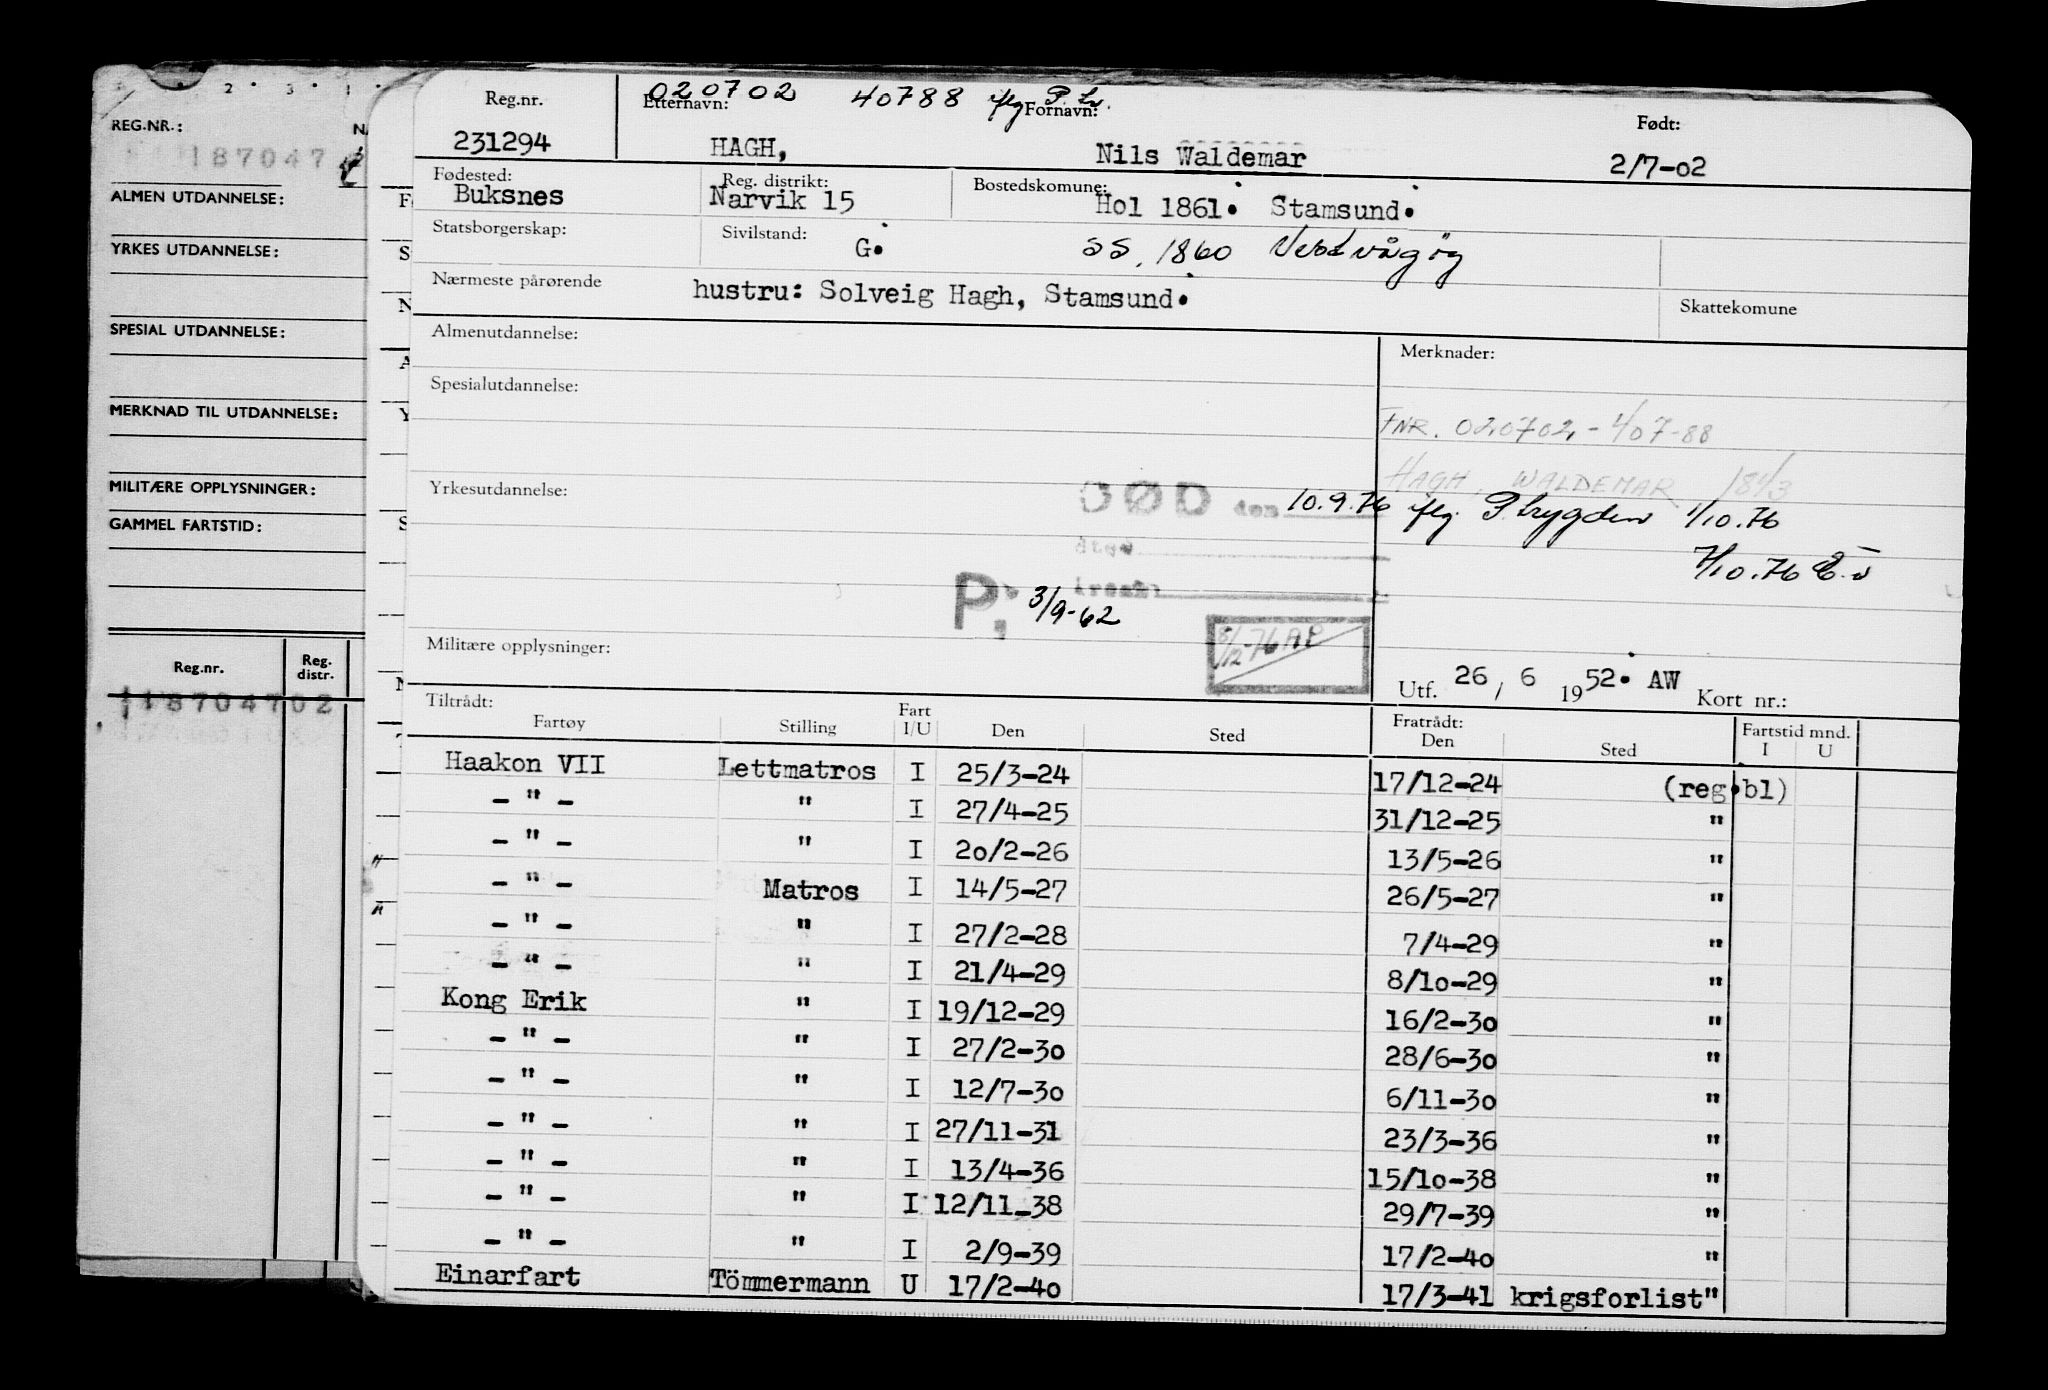 REG.NR.:
187047
ALMEN UTDANNELSE:
YRKES UTDANNELSE:
SPESIAL UTDANNELSE:
MERKNAD TIL UTDANNELSE:
MILITÆRE OPPLYSNINGER:
GAMMEL FARTSTID:
Reg.nr. Reg. distr.
18704702
020702 40788 iflg P. tr.
Reg.nr. Etternavn: Fornavn: Født:
231294 HAGH, Nils Waldemar 2/7-02
Fødested: Reg. distrikt: Bostedskomune:
Buksnes Narvik 15 Hol 1861. Stamsund.
Statsborgerskap: Sivilstand: G. 1860 Vestvågøy
Nærmeste pårørende hustru: Solveig Hagh, Stamsund. Skattekomune
Almenutdannelse: Merknader:
Spesialutdannelse:
FNR. 020702-407-88
HAGH, WALDEMAR
Yrkesutdannelse: DØD den 10.9.76 iflg. P.trygden 1/10.76
7/10.76
P; 3/9-62
8/12-76 AP
Militære opplysninger:
Utf. 26/6 1952. AW Kort nr.:
Tiltrådt: Fratrådt:
Fartøy Stilling Fart I/U Den Sted Den Sted Fartstid mnd. I U
Haakon VII Lettmatros I 25/3-24 17/12-24 (reg.bl)
- " - " I 27/4-25 31/12-25 "
- " - " I 20/2-26 13/5-26 "
- " - Matros I 14/5-27 26/5-27 "
- " - " I 27/2-28 7/4-29 "
- " - " I 21/4-29 8/10-29 "
Kong Erik " I 19/12-29 16/2-30 "
- " - " I 27/2-30 28/6-30 "
- " - " I 12/7-30 6/11-30 "
- " - " I 27/11-31 23/3-36 "
- " - " I 13/4-36 15/10-38 "
- " - " I 12/11-38 29/7-39 "
- " - " I 2/9-39 17/2-40 "
Einarfart Tömmermann U 17/2-40 17/3-41 krigsforlist"